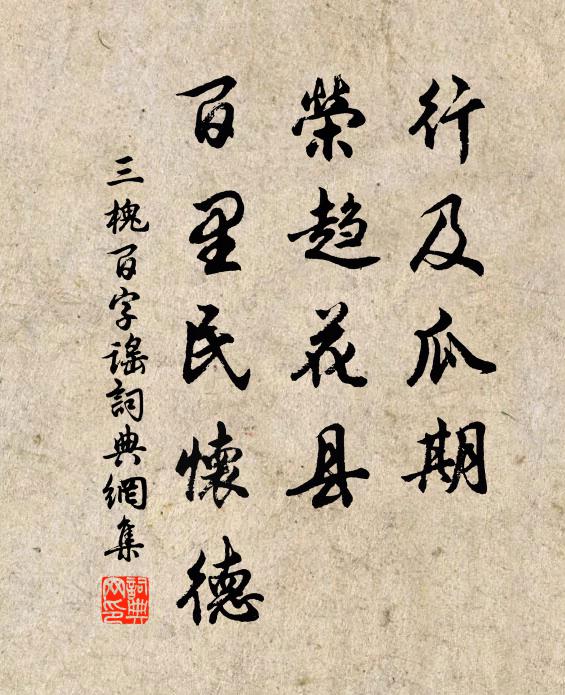 行及瓜期
榮趨花县
百里民懷德
三槐百字謠詞典網集
詞典网印